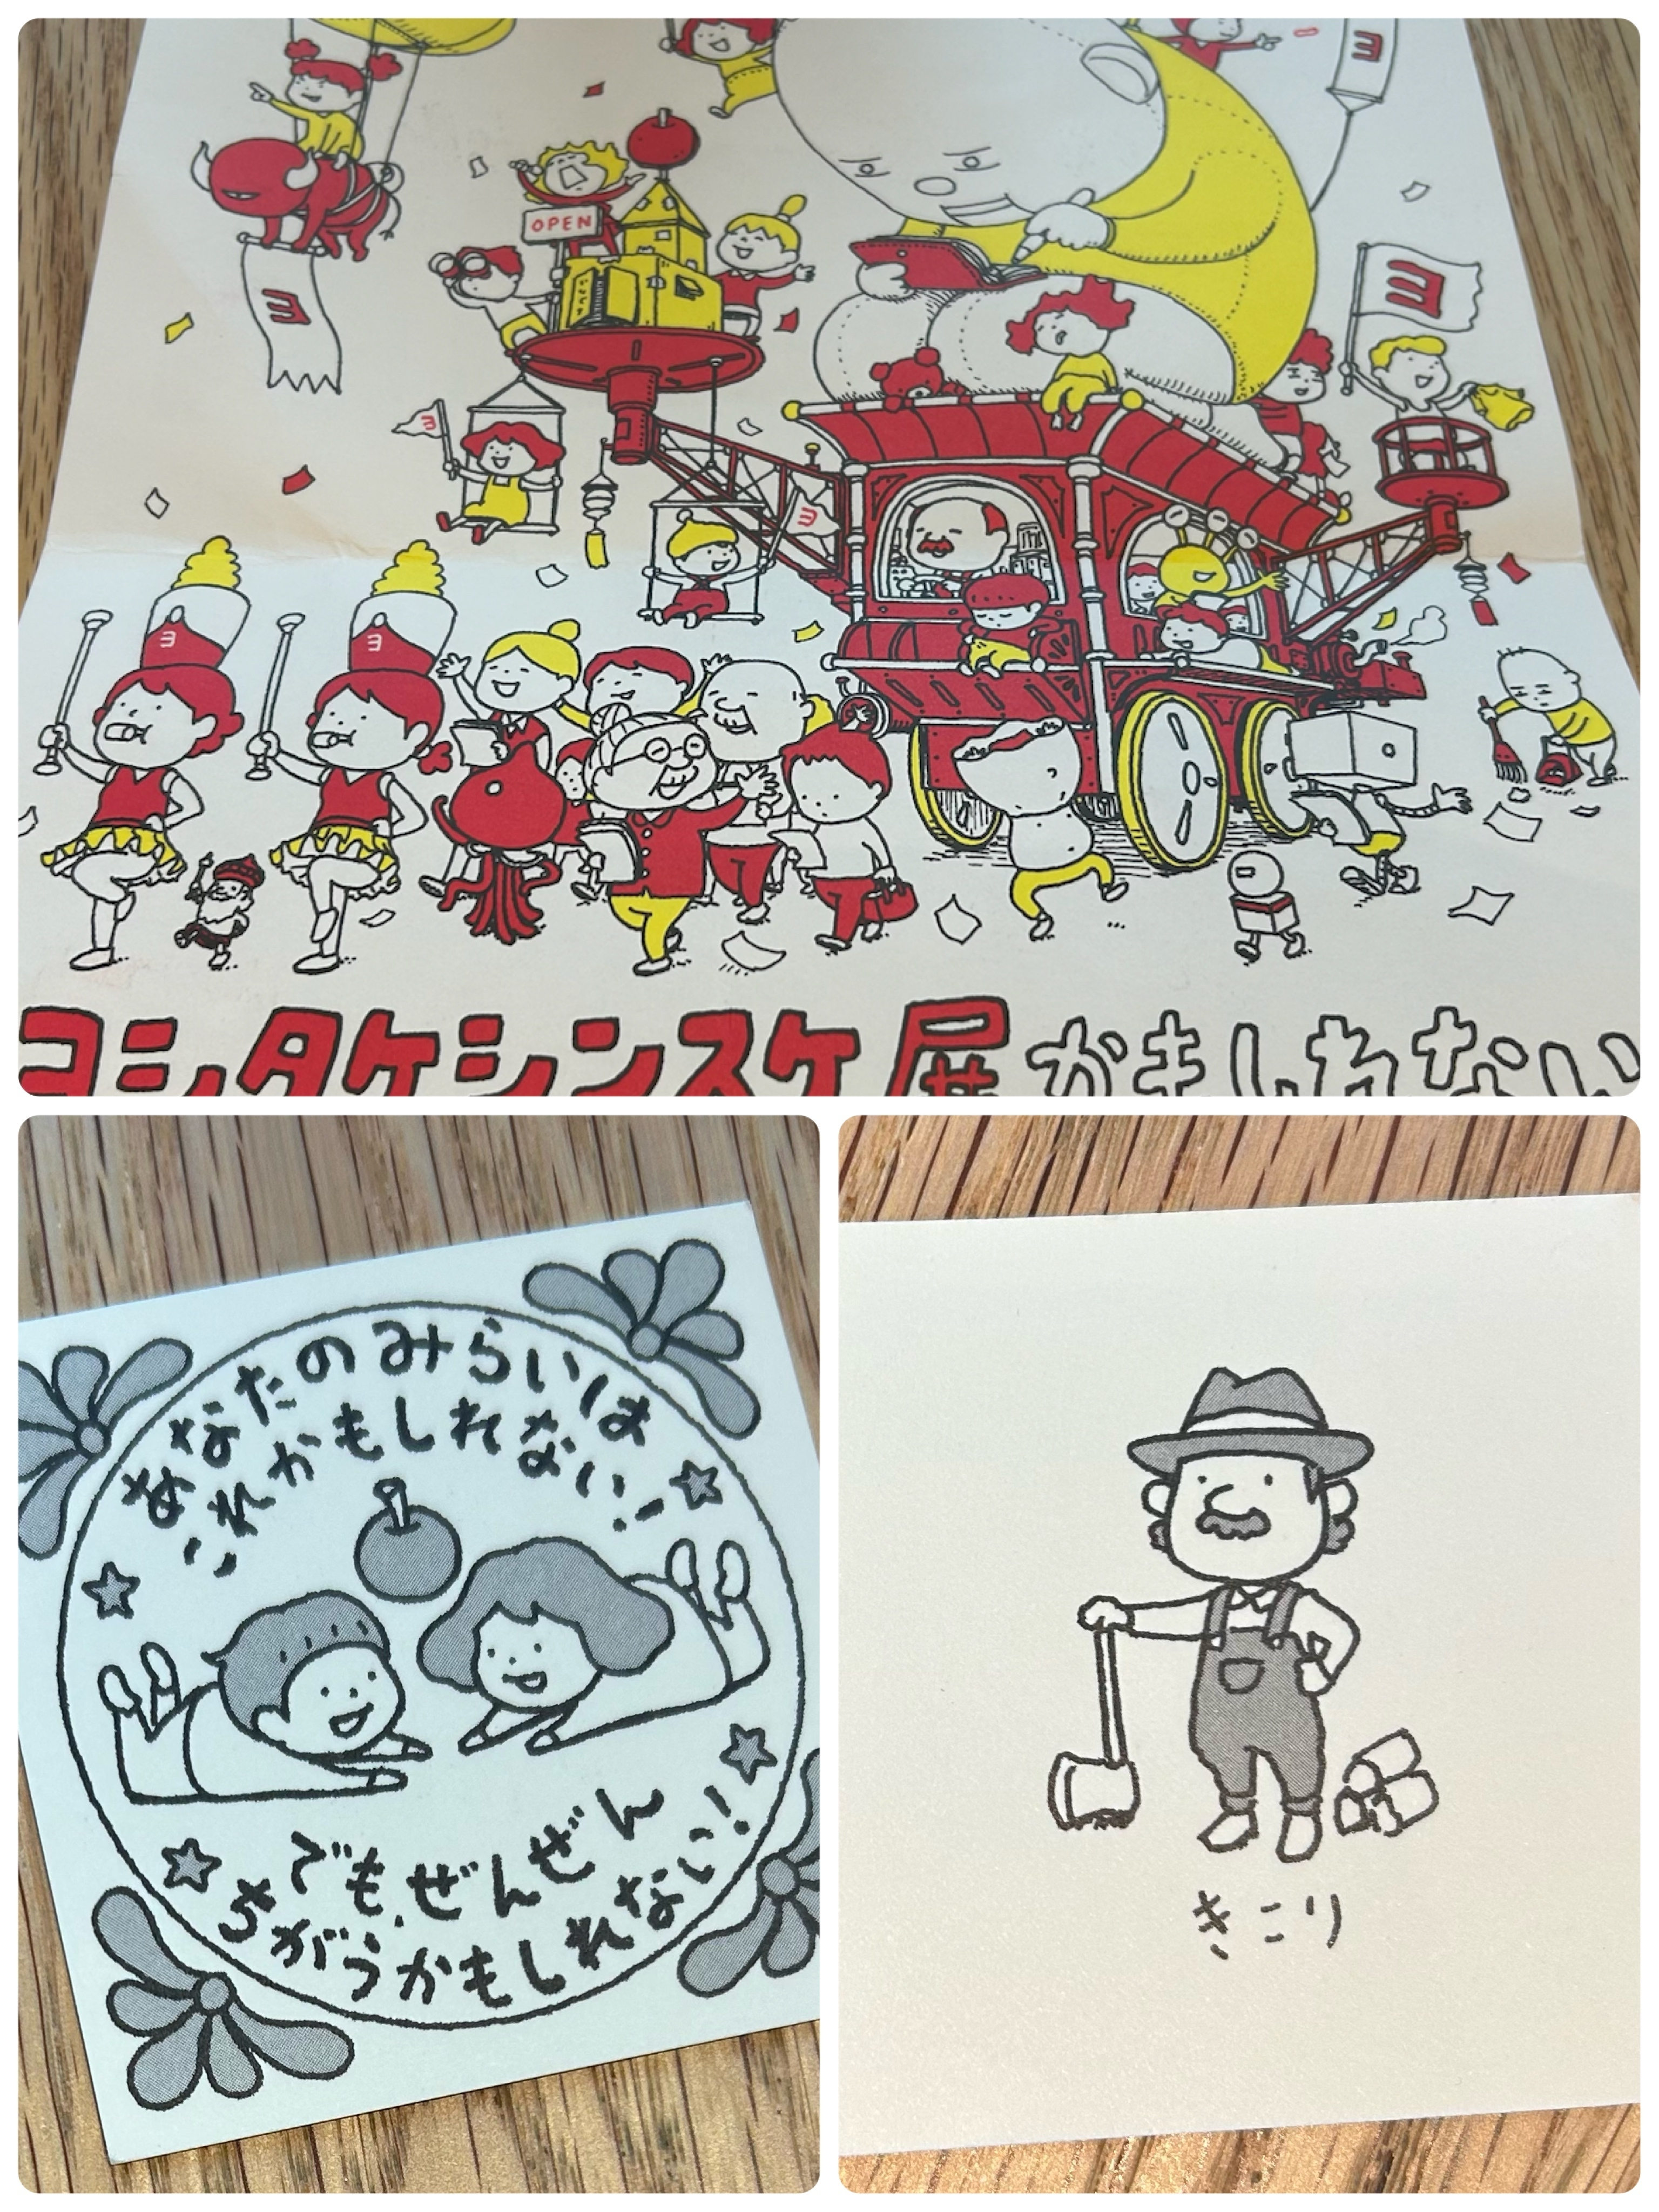 ヨ
OPEN
ヨ
ヨ
ヨ
ヨ
ヨ
ヨ
ヨシタケシンスケ展かもしれない
あなたのみらいは
これかもしれない!
でも、ぜんぜん
ちがうかもしれない!
きこり